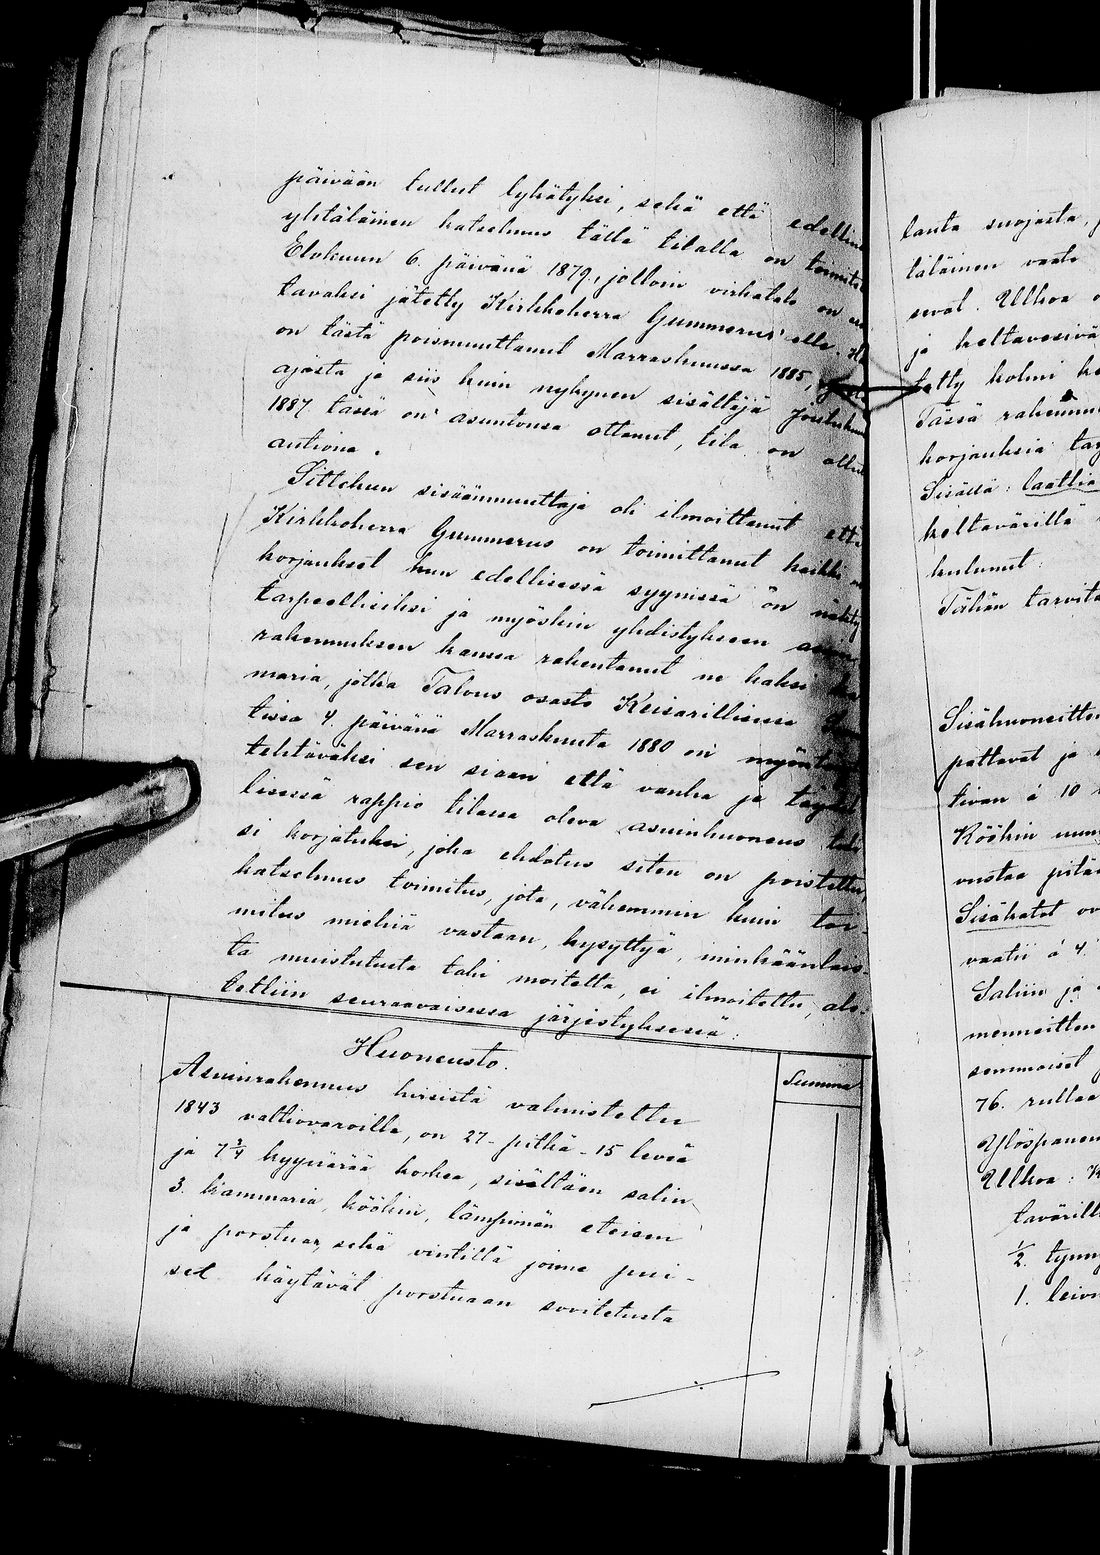 päivään tullut lykätyksi, sekä että edelline
yhtäläinen katselmus tällä tilalla on toimitet
Elokuun 6. päivänä 1879, jolloin virkatalo on
tavaksi jätetty Kirkkoherra Gummerus'elle.
on tästä poismuuttanut Marraskuussa 1885,
ajasta ja siis kuin nykynen sisältäjä Joulukuu
1887 tässä on asuntonsa ottanut, tila on ollut
autiona.
Sittekun sisäänmuuttaja oli ilmoittanut että
Kirkkoherra Gummerus on toimittanut kaikki
korjaukset kun edellisessä syynissä on nähty
tarpeellisiksi ja myöskin yhdistykseen asuin
rahennuksen kanssa rakentanut ne kaksi ka
maria, jotka Talous osasto Keisarillisessa
tissa 4. päivänä Marraskuuta 1880 on myöntänyt
tehtäväksi sen siaan että vanha ja täydel
lisessä rappio tilassa oleva asuinhuoneus
si korjatuksi, joka ehdotus siten on poistettu,
katselmus toimitus, jota, vähemmin kuin toi-
mitus miehiä vastaan, kysyttyä, minkäänlais-
ta muistutusta tahi moitetta, ei ilmoitettu, alo-
tettiin seuraavaisessa järjestyksessä:
Huoneusto.
Summa
Asuinrahennus hirsistä valmistettu
1843 valtiovaroilla, on 27- pitkä - 15 leveä
ja 7 3/4 kyynärää korkea, sisältäen salin,
3. kammaria, köökin, lämpimän eteisen
ja porstuan, sekä vintillä jonne pui-
set käytävät porstuaan sovitetusta
lauta suojasta,
läläinen vaate
seval. Ulkoa
ja keltavesivä
tetty kolmi
Tässä rahennu
korjauksia tar
Sisässä: laattia
keltavärillä
kulunut.
Tähän tarvita
Sisähuoneitten
pattavat ja
tivan á 10
Köökin uuni
uustaa pitää
Sisäkatot ov
vaatii á 4.
Saliin ja
menneitten
semmoiset
76. rullaa
Ylöspanen
Ulkoa: K
tavärill
1/2. tynny
1. leivi